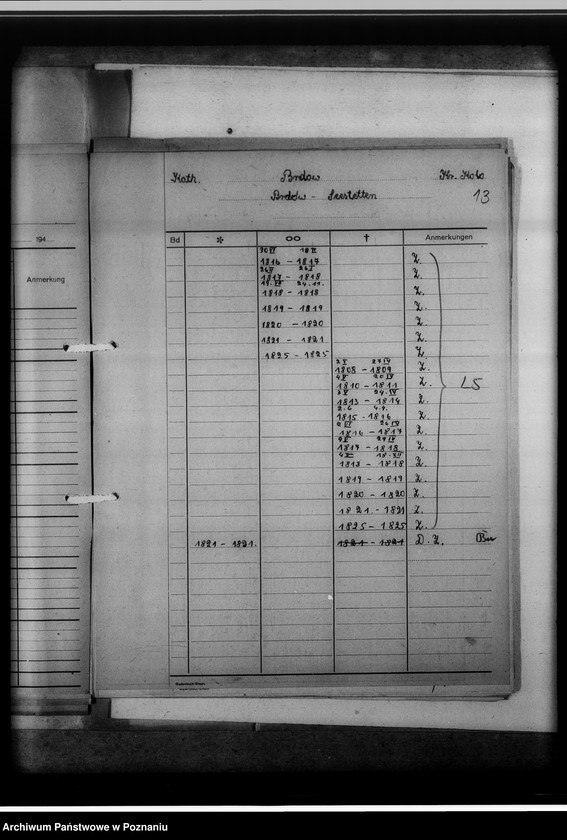 Kath. Brdow Kr. Kolo
Brdow - Seestetten 13
194
Bd * oo † Anmerkungen
Anmerkung
1816 - 1817 Z.
1817 - 1818 Z.
1818 - 1818 Z.
1819 - 1819 Z.
1820 - 1820 Z.
1821 - 1821 Z.
1825 - 1825 Z.
1808 - 1809 Z.
1810 - 1811 Z. LS
1813 - 1814 Z.
1815 - 1816 Z.
1816 - 1817 Z.
1817 - 1818 Z.
1818 - 1818 Z.
1819 - 1819 Z.
1820 - 1820 Z.
1821 - 1821 Z.
1825 - 1825 Z.
1821 - 1821. 1821 - 1821 D. Z.
Archiwum Państwowe w Poznaniu